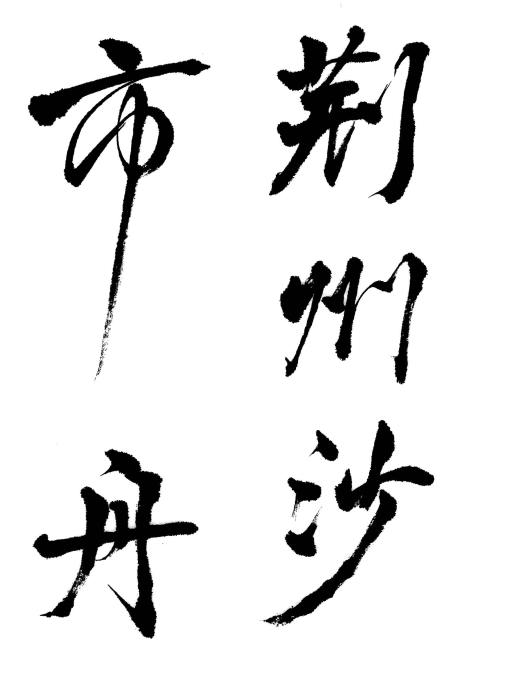 荆州沙
市舟